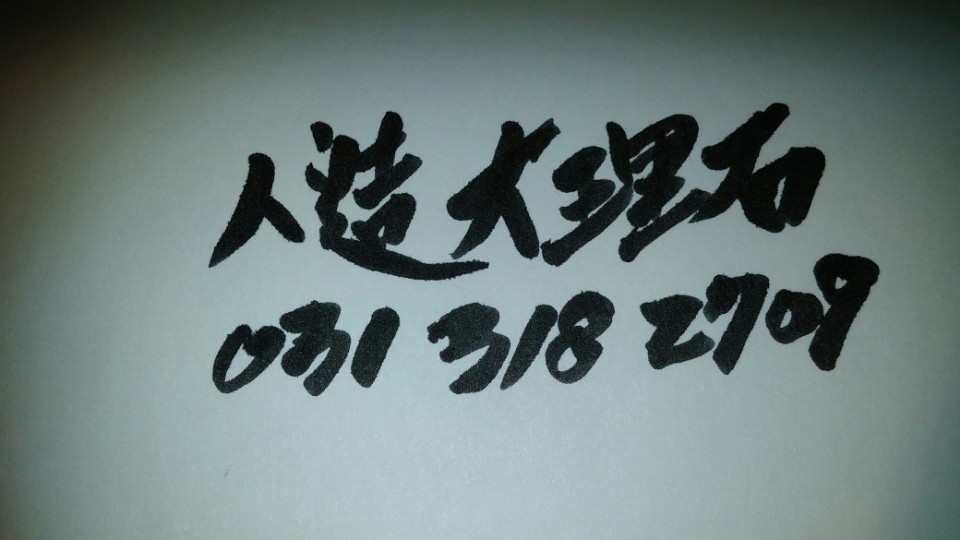 人造大理石
031 318 2709